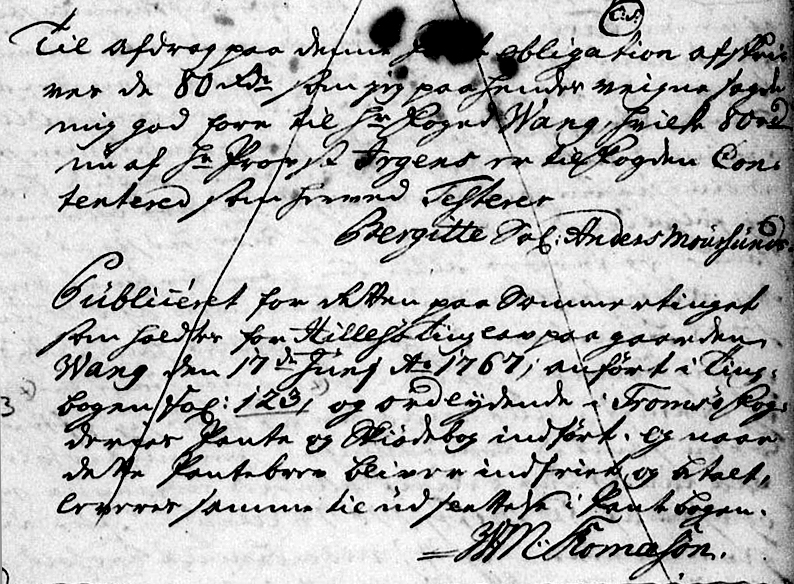 L: S:
Til Afdrag paa denne obligation afskri
ves de 80 rdr som jeg paa hendes veigne sagde
mig god fore til Hr Foged Wang, hvilke 80 rd
nu af Hr Provst Irgens er til Fogden Con:
tentered som herved Testerer
Bergitte Sal: Anders Moursunds
Publiceret for Retten paa Sommertinget
som holdtes for Hillesø Tinglav paa gaarden
Wang den 17de Junj Ao 1767, anført i Ting:
bogen Fol: 123, og ordlydende i Tromsø Fog:
deries Pante og Skiødebog indført. og naar
dette Pantebrev bliver indfriet og betalt,
leveres samme til udslettelse i Pantbogen.